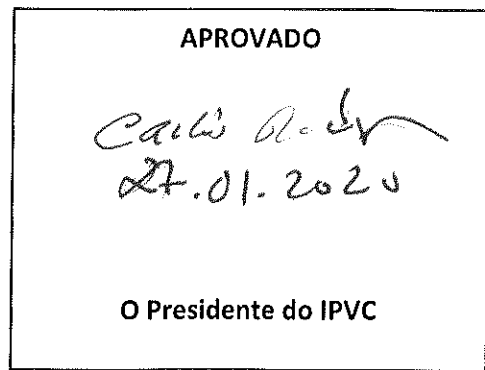 APROVADO
Carlos
27.01.2020
O Presidente do IPVC